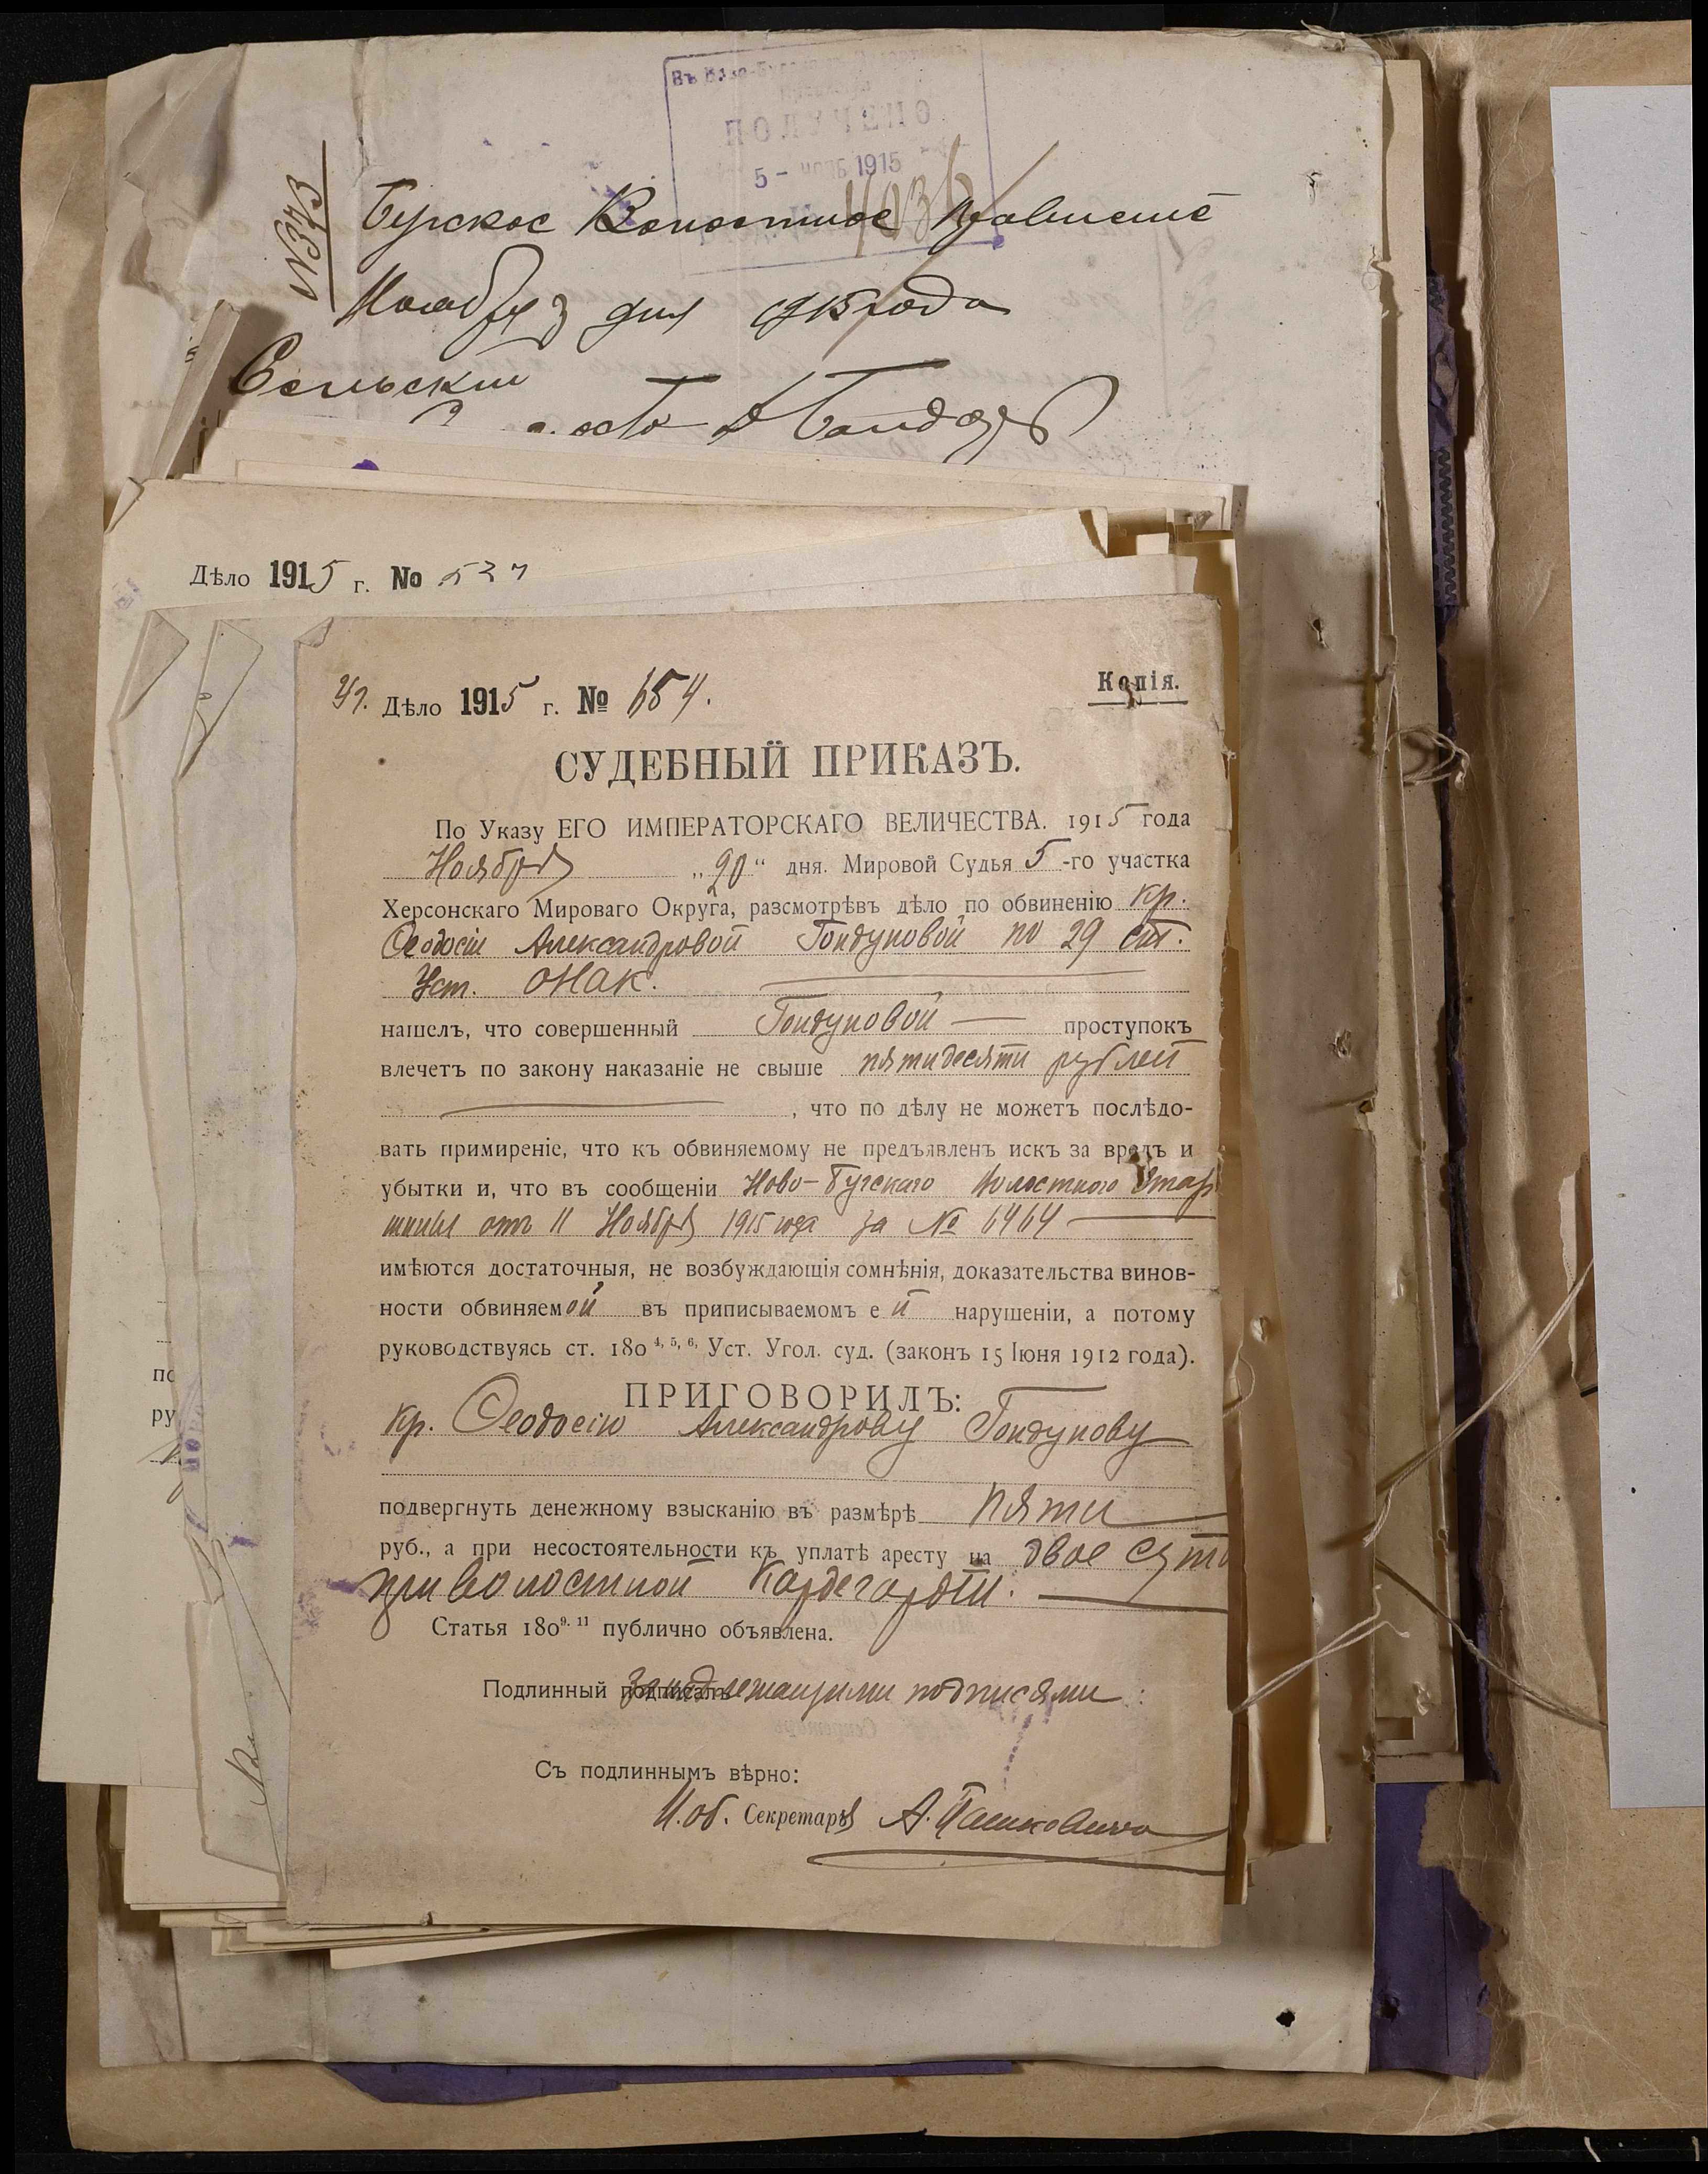 ПОЛУЧЕНО
5 - 1915
№373
Бугское Волостное Правление
Ноября 3 дня 1915 года
Сельский
Дѣло 1915 г. № 537
Дѣло 1915 г. № 654.
Копія.
СУДЕБНЫЙ ПРИКАЗЪ.
По Указу ЕГО ИМПЕРАТОРСКАГО ВЕЛИЧЕСТВА. 1915 года
Ноября „20“ дня. Мировой Судья 5-го участка
Херсонскаго Мироваго Округа, разсмотрѣвъ дѣло по обвиненію кр.
Ѳеодосіи Александровой Гондуповой по 29 ст.
Уст. о нак.
нашелъ, что совершенный Гондуповой — проступокъ
влечетъ по закону наказаніе не свыше пятидесяти рублей
, что по дѣлу не можетъ послѣдо-
вать примиреніе, что къ обвиняемому не предъявленъ искъ за вредъ и
убытки и, что въ сообщеніи Ново-Бугскаго Волостного Стар
шины отъ 11 Ноября 1915 года за № 6464 —
имѣются достаточныя, не возбуждающія сомнѣнія, доказательства винов-
ности обвиняемой въ приписываемомъ ей нарушеніи, а потому
руководствуясь ст. 180 4, 5, 6, Уст. Угол. суд. (законъ 15 Іюня 1912 года).
ПРИГОВОРИЛЪ:
кр. Ѳеодосію Александрову Гондупову
подвергнуть денежному взысканію въ размѣрѣ пяти
руб., а при несостоятельности къ уплатѣ аресту на двое сут
при волостной Кордегардіи. —
Статья 180 9. 11 публично объявлена.
Подлинный подписалъ за надлежащими подписями
Съ подлиннымъ вѣрно:
И. об. Секретаря А. Пашковичъ